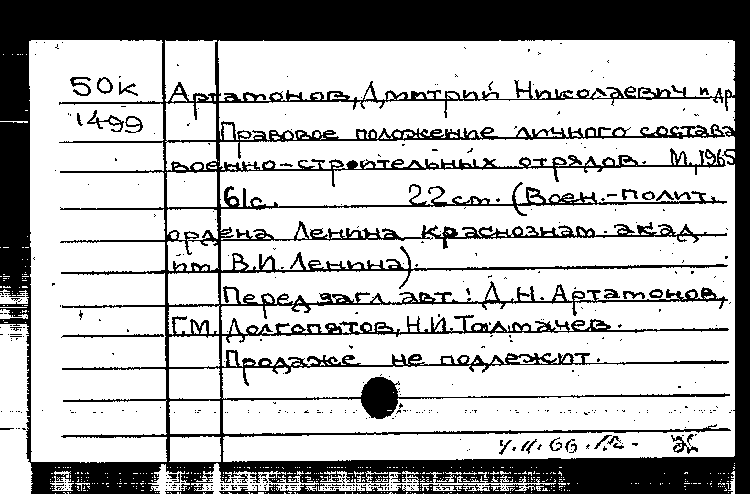 50к Артамонов, Дмитрий Николаевич и др
1499 Правовое положение личного состава
военно-строительных отрядов. М., 1965
61с. 22см. (Воен.-полит.
ордена Ленина краснознам. акад.
им. В.И. Ленина).
Перед загл. авт.: Д.Н. Артамонов,
Г.М. Долгопятов, Н.И. Толмачев.
Продаже не подлежит.